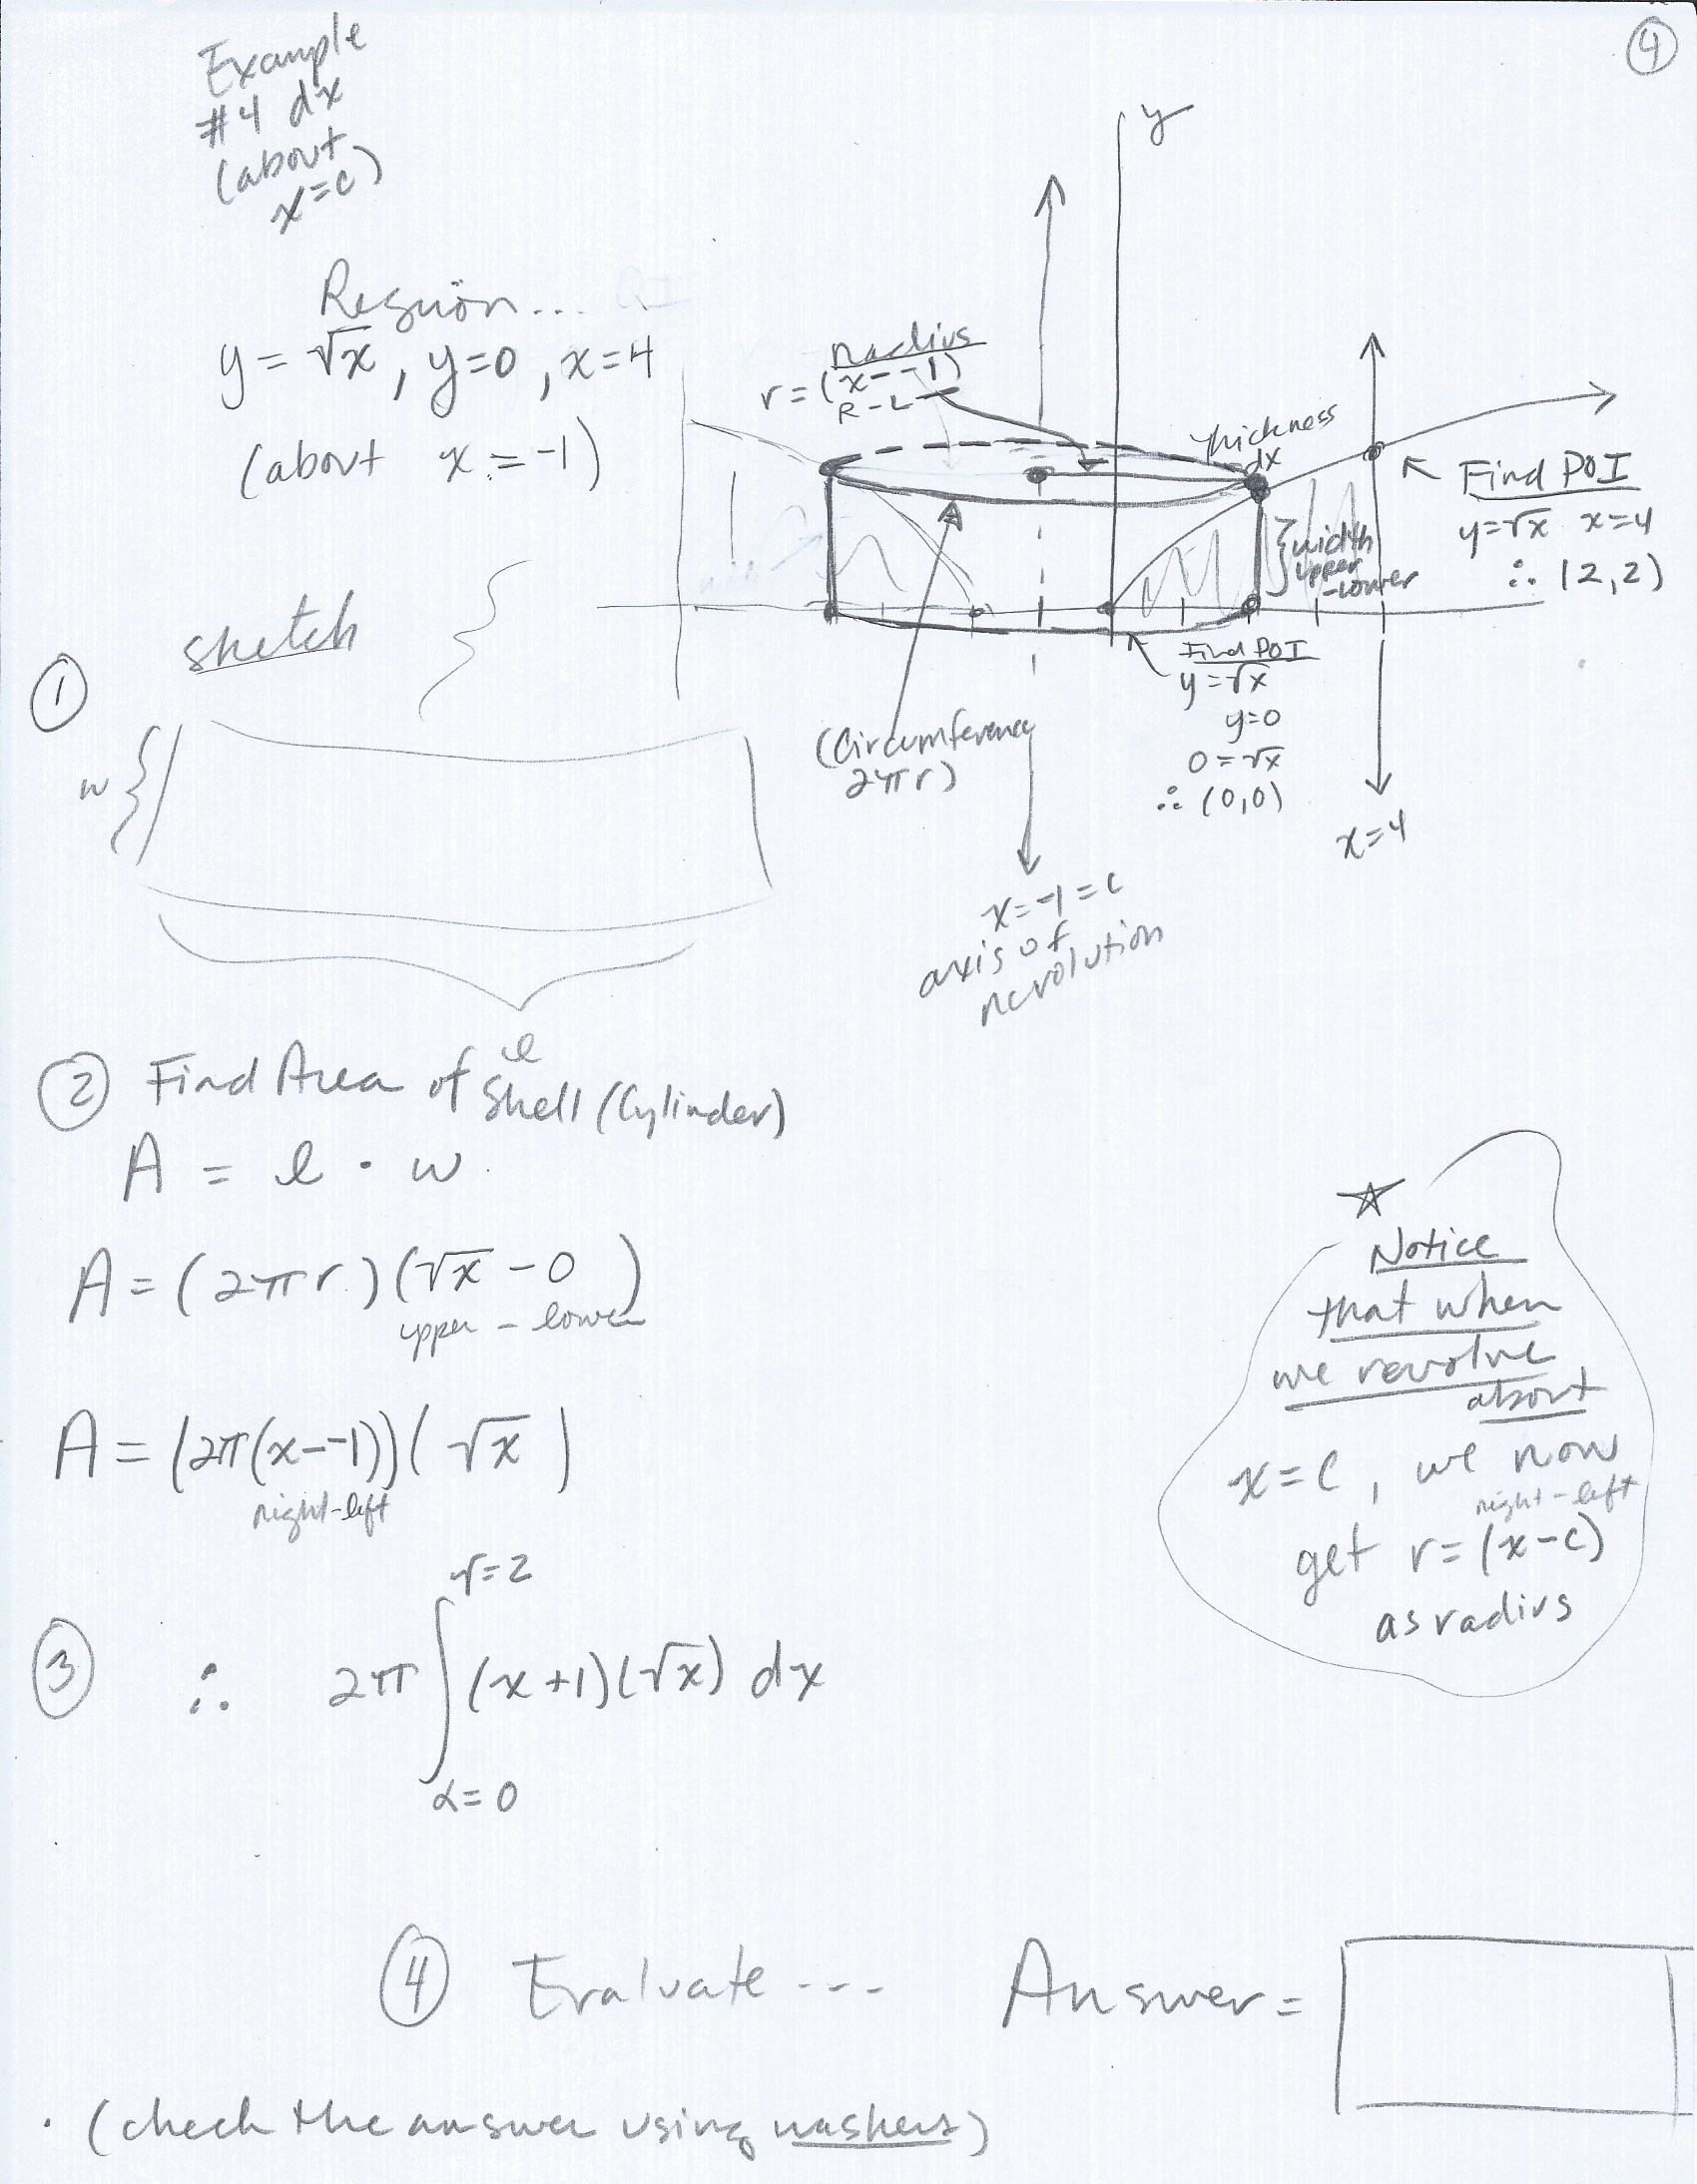 ④
Example
#4 dx
(about
x=c)
Region...
y = √x, y=0, x=4
(about x = -1)
y
radius
r = (x--1)
R-L
thickness
dx
width
upper
-lower
Find POI
y=√x x=4
∴ (2,2)
Find POI
y=√x
y=0
0=√x
∴ (0,0)
x=4
(Circumference
2πr)
x=-1=c
axis of
revolution
① sketch
w
l
② Find Area of Shell (Cylinder)
A = l · w
A = (2πr)(√x - 0)
upper - lower
A = (2π(x--1))(√x)
right-left
☆
Notice
that when
we revolve
about
x=c, we now
right-left
get r=(x-c)
as radius
r=2
③ ∴ 2π∫(x+1)(√x) dx
x=0
④ Evaluate --- Answer =
· (check the answer using washers)